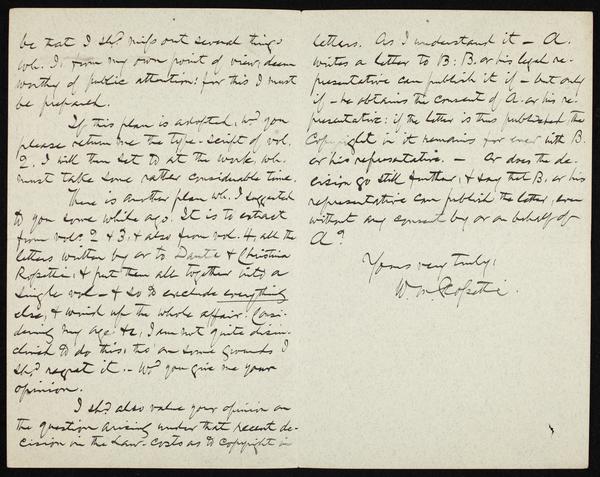 be that I shd. miss out several things
wh. I, from my own point of view, deem
worthy of public attention: for this I must
be prepared.
If this plan is adopted, wd. you
please return me the type-script of vol.
2. I will then set to at the work, wh.
must take some rather considerable time.
There is another plan wh. I suggested
to you some while ago. It is to extract
from vols. 2 & 3, & also from vol. 4, all the
letters written by or to Dante & Christina
Rossetti, & put them all together into a
single vol. — & so to exclude everything
else, & wind up the whole affair. Consi-
dering my age &c, I am not quite disin-
clined to do this, tho' on some grounds I
shd. regret it. — Wd. you give me your
opinion.
I shd. also value your opinion on
the question arising under that recent de-
cision in the Law-courts as to copyright in
letters. As I understand it — A.
writes a letter to B: B. or his legal re-
presentative can publish it if — but only
if — he obtains the consent of A. or his re-
presentative: if the letter is thus published the
Copyright in it remains for ever with B.
or his representative. — Or does the de-
cision go still further, & say that B. or his
representative can publish the letter, even
without any consent by or on behalf of
A?
Yours very truly,
W M Rossetti.